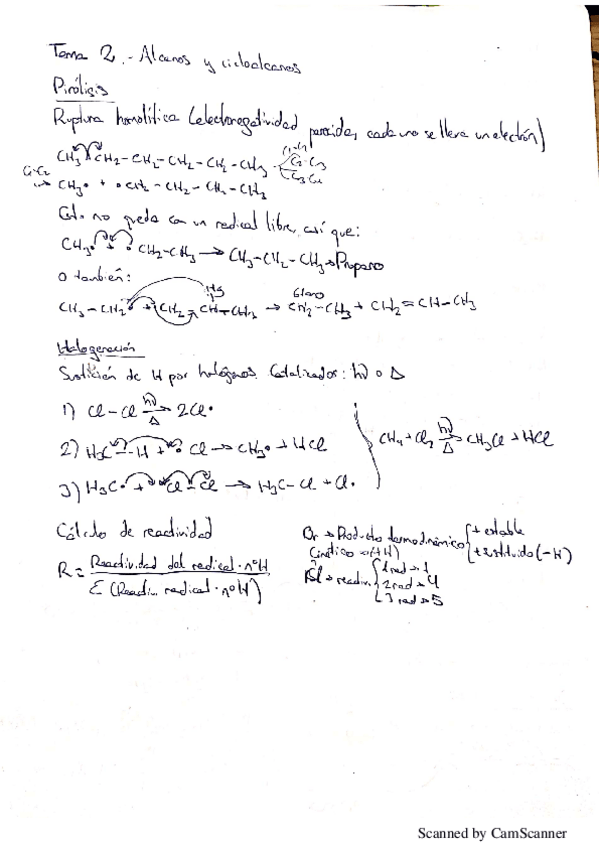 Tema 2.- Alcanos y cicloalcanos
Pirólisis
Ruptura homolítica (electronegatividad parecida, cada uno se lleva un electrón)
CH3-CH2-CH2-CH2-CH2-CH3 C1-C2
C2-C3
C3-C4
C1-C2 → CH3• + •CH2-CH2-CH2-CH3
no queda con un radical libre, así que:
CH3• •CH2-CH3 → CH3-CH2-CH3 → Propano
o también:
CH3-CH2• + CH2-CH-CH3 → CH3-CH3 + CH2=CH-CH3
Halogenación
Sustitución de H por halógenos. Catalizador: hν o Δ
1) Cl-Cl hν/Δ → 2Cl•
2) H3C-H + •Cl → CH3• + HCl
3) H3C• + Cl-Cl → H3C-Cl + Cl•
CH4 + Cl2 hν/Δ → CH3Cl + HCl
Cálculo de reactividad
R = Reactividad del radical · nºH / Σ (Reactiv. radical · nºH)
Br → Producto termodinámico { + estable
+ sustituido (-H)
Cinético (+H)
Cl → reactiv. { 1 rad → 1
2 rad → 4
3 rad → 5
Scanned by CamScanner